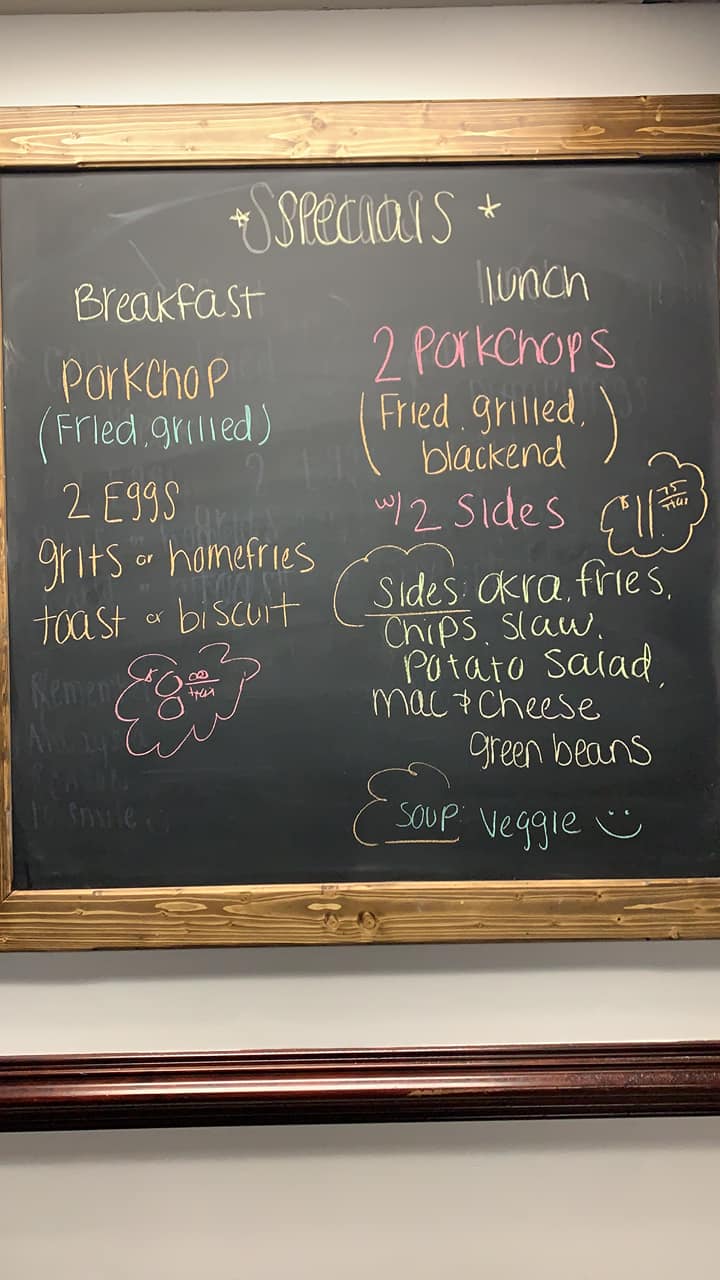 *Specials*
Breakfast
Porkchop
(Fried, grilled)
2 Eggs
grits or homefries
toast or biscuit
$8.00 + tax
lunch
2 Porkchops
(Fried, grilled,
blackend)
w/ 2 Sides
$11.75 + tax
Sides: okra, fries,
Chips, slaw,
Potato Salad,
mac & cheese
green beans
Soup: Veggie :)